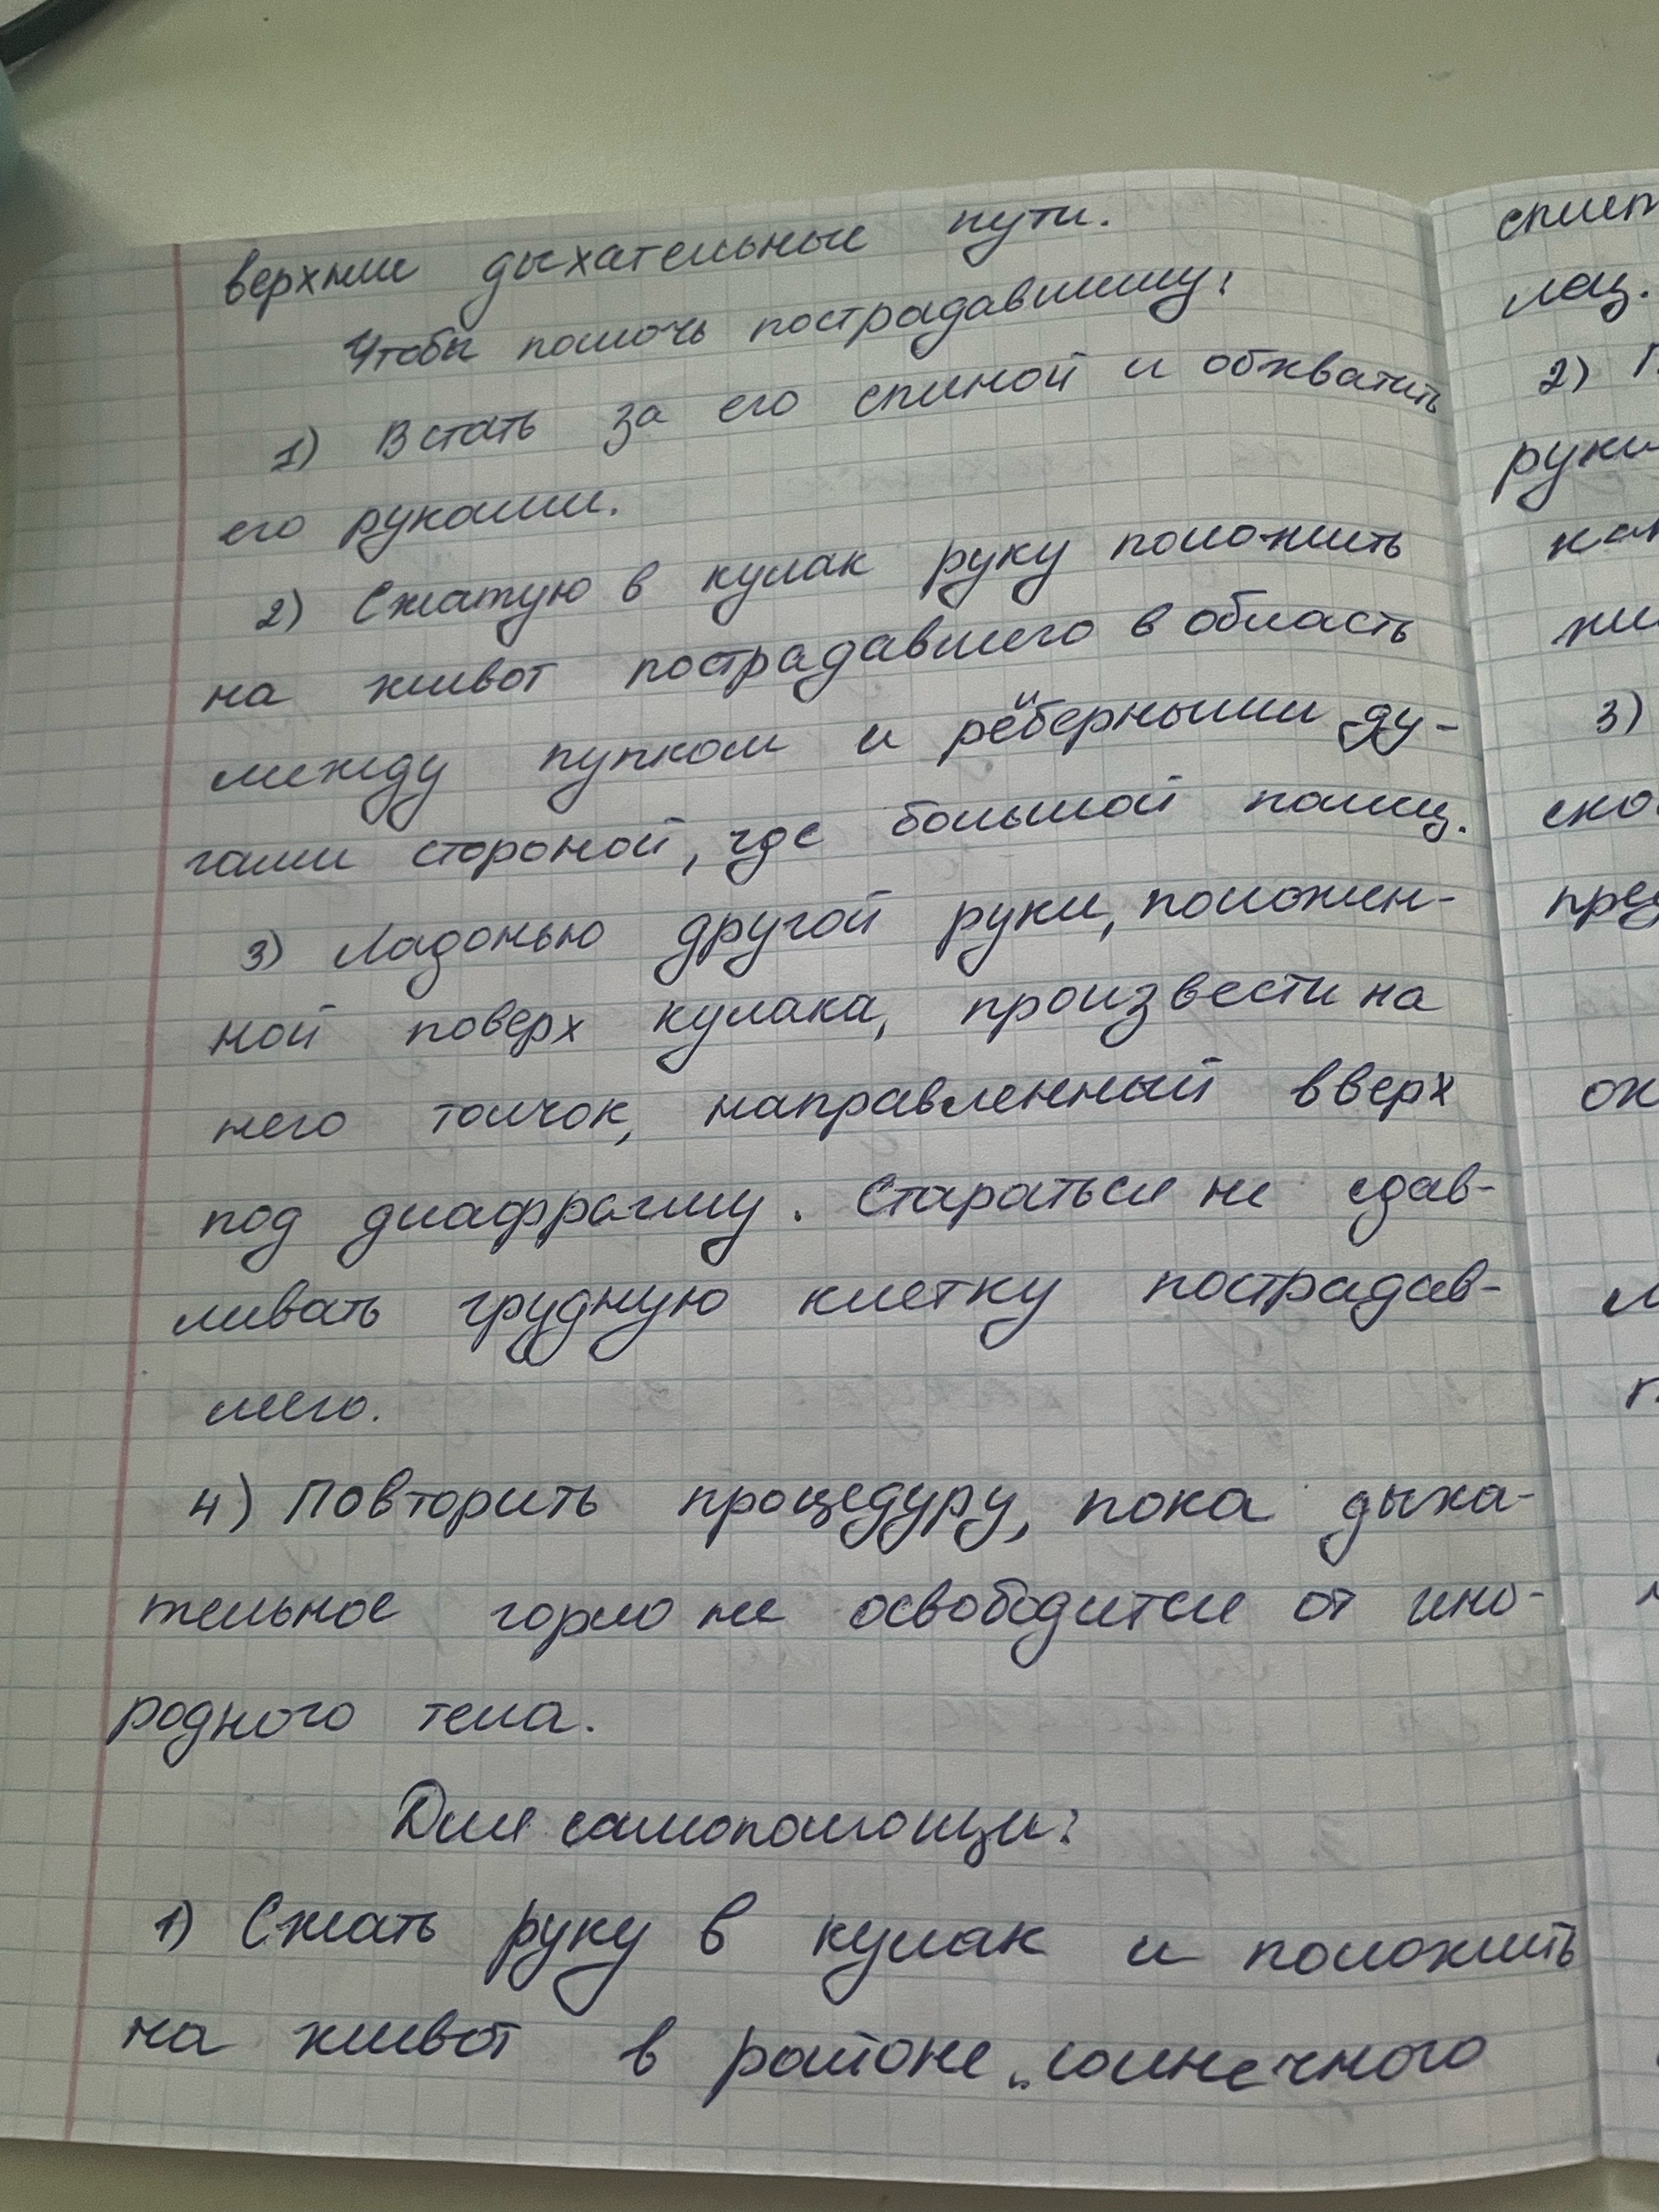 верхние дыхательные пути.
Чтобы помочь пострадавшему:
1) Встать за его спиной и обхватить
его руками.
2) Сжатую в кулак руку положить
на живот пострадавшего в область
между пупком и рёберными ду-
гами стороной, где большой палец.
3) Ладонью другой руки, положен-
ной поверх кулака, произвести на
него толчок, направленный вверх
под диафрагму. Стараться не сдав-
ливать грудную клетку пострадав-
шего.
4) Повторить процедуру, пока дыха-
тельное горло не освободится от ино-
родного тела.
Для самопомощи:
1) Сжать руку в кулак и положить
на живот в районе „солнечного
лац.
2)
руки
3)